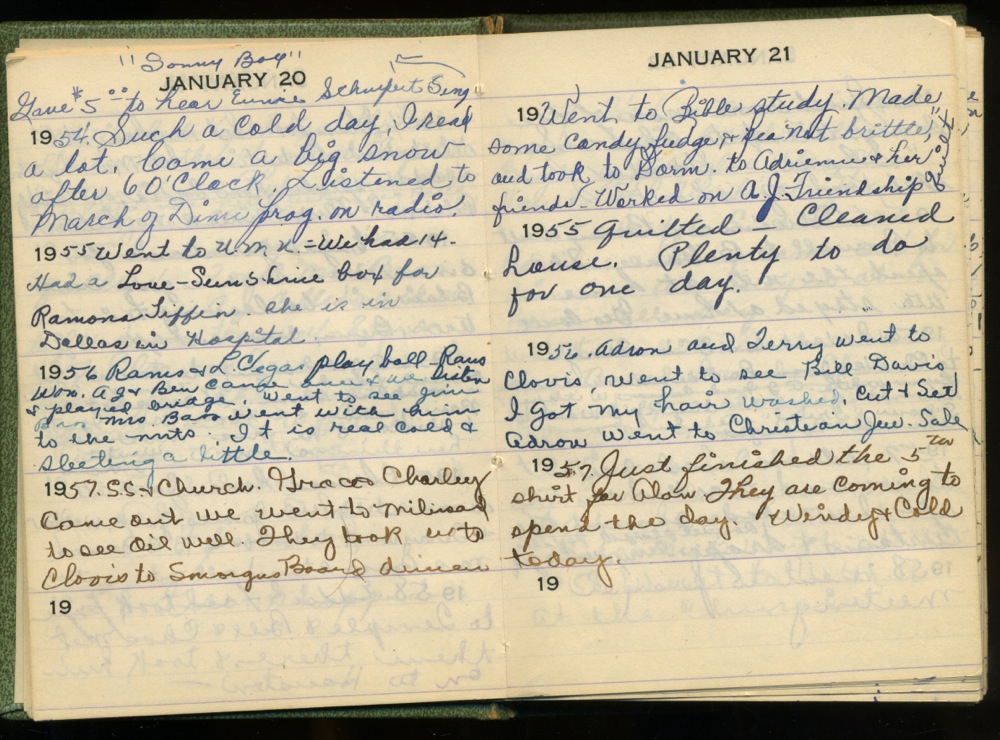 "Sonny Boy"
JANUARY 20
Gave $5.00 to hear Eunie Schupert Sing
1954. Such a cold day, I read
a lot. Came a big snow
after 6 O'Clock. Listened to
March of Dime prog. on radio.
1955 Went to W.M.U. = We had 14.
Had a Love-Sunshine box for
Ramona Tiffin. She is in
Dallas in Hospital.
1956 Rams & L. Vegas play ball - Rams
Won. A J & Ben came over & we listen
& played bridge. Went to see Jim
Mrs. Bass went with him
to the mts. It is real cold &
sleeting a little.
1957. S.S. & Church. Grace & Charley
Came out we went to Milnesand
to see Oil well. They took us to
Clovis to Smorgus Board dinner
19
JANUARY 21
19 Went to Bible study. Made
some candy, fudge, & peanut brittle,
and took to Dorm. to Adrienne & her
friends. Worked on A.J. Friendship Quilt
1955 Quilted - Cleaned
house. Plenty to do
for one day.
1956. Adron and Terry went to
Clovis, went to see Bill Davis
I got my hair washed, cut & set
Adron went to Christian Jew. Sale
1957. Just finished the 5th
shirt for Alan They are coming to
spend the day. Windy & Cold
today.
19